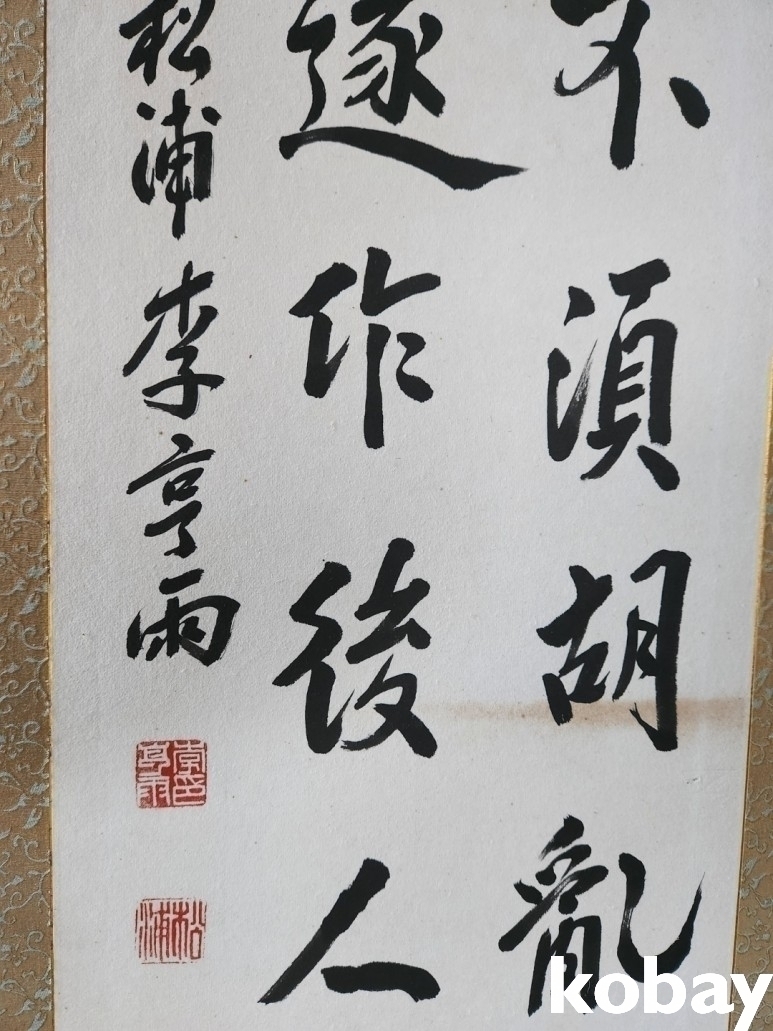 不須胡亂
遂作後人
松浦 李亨雨
李印亨雨
松浦
kobay